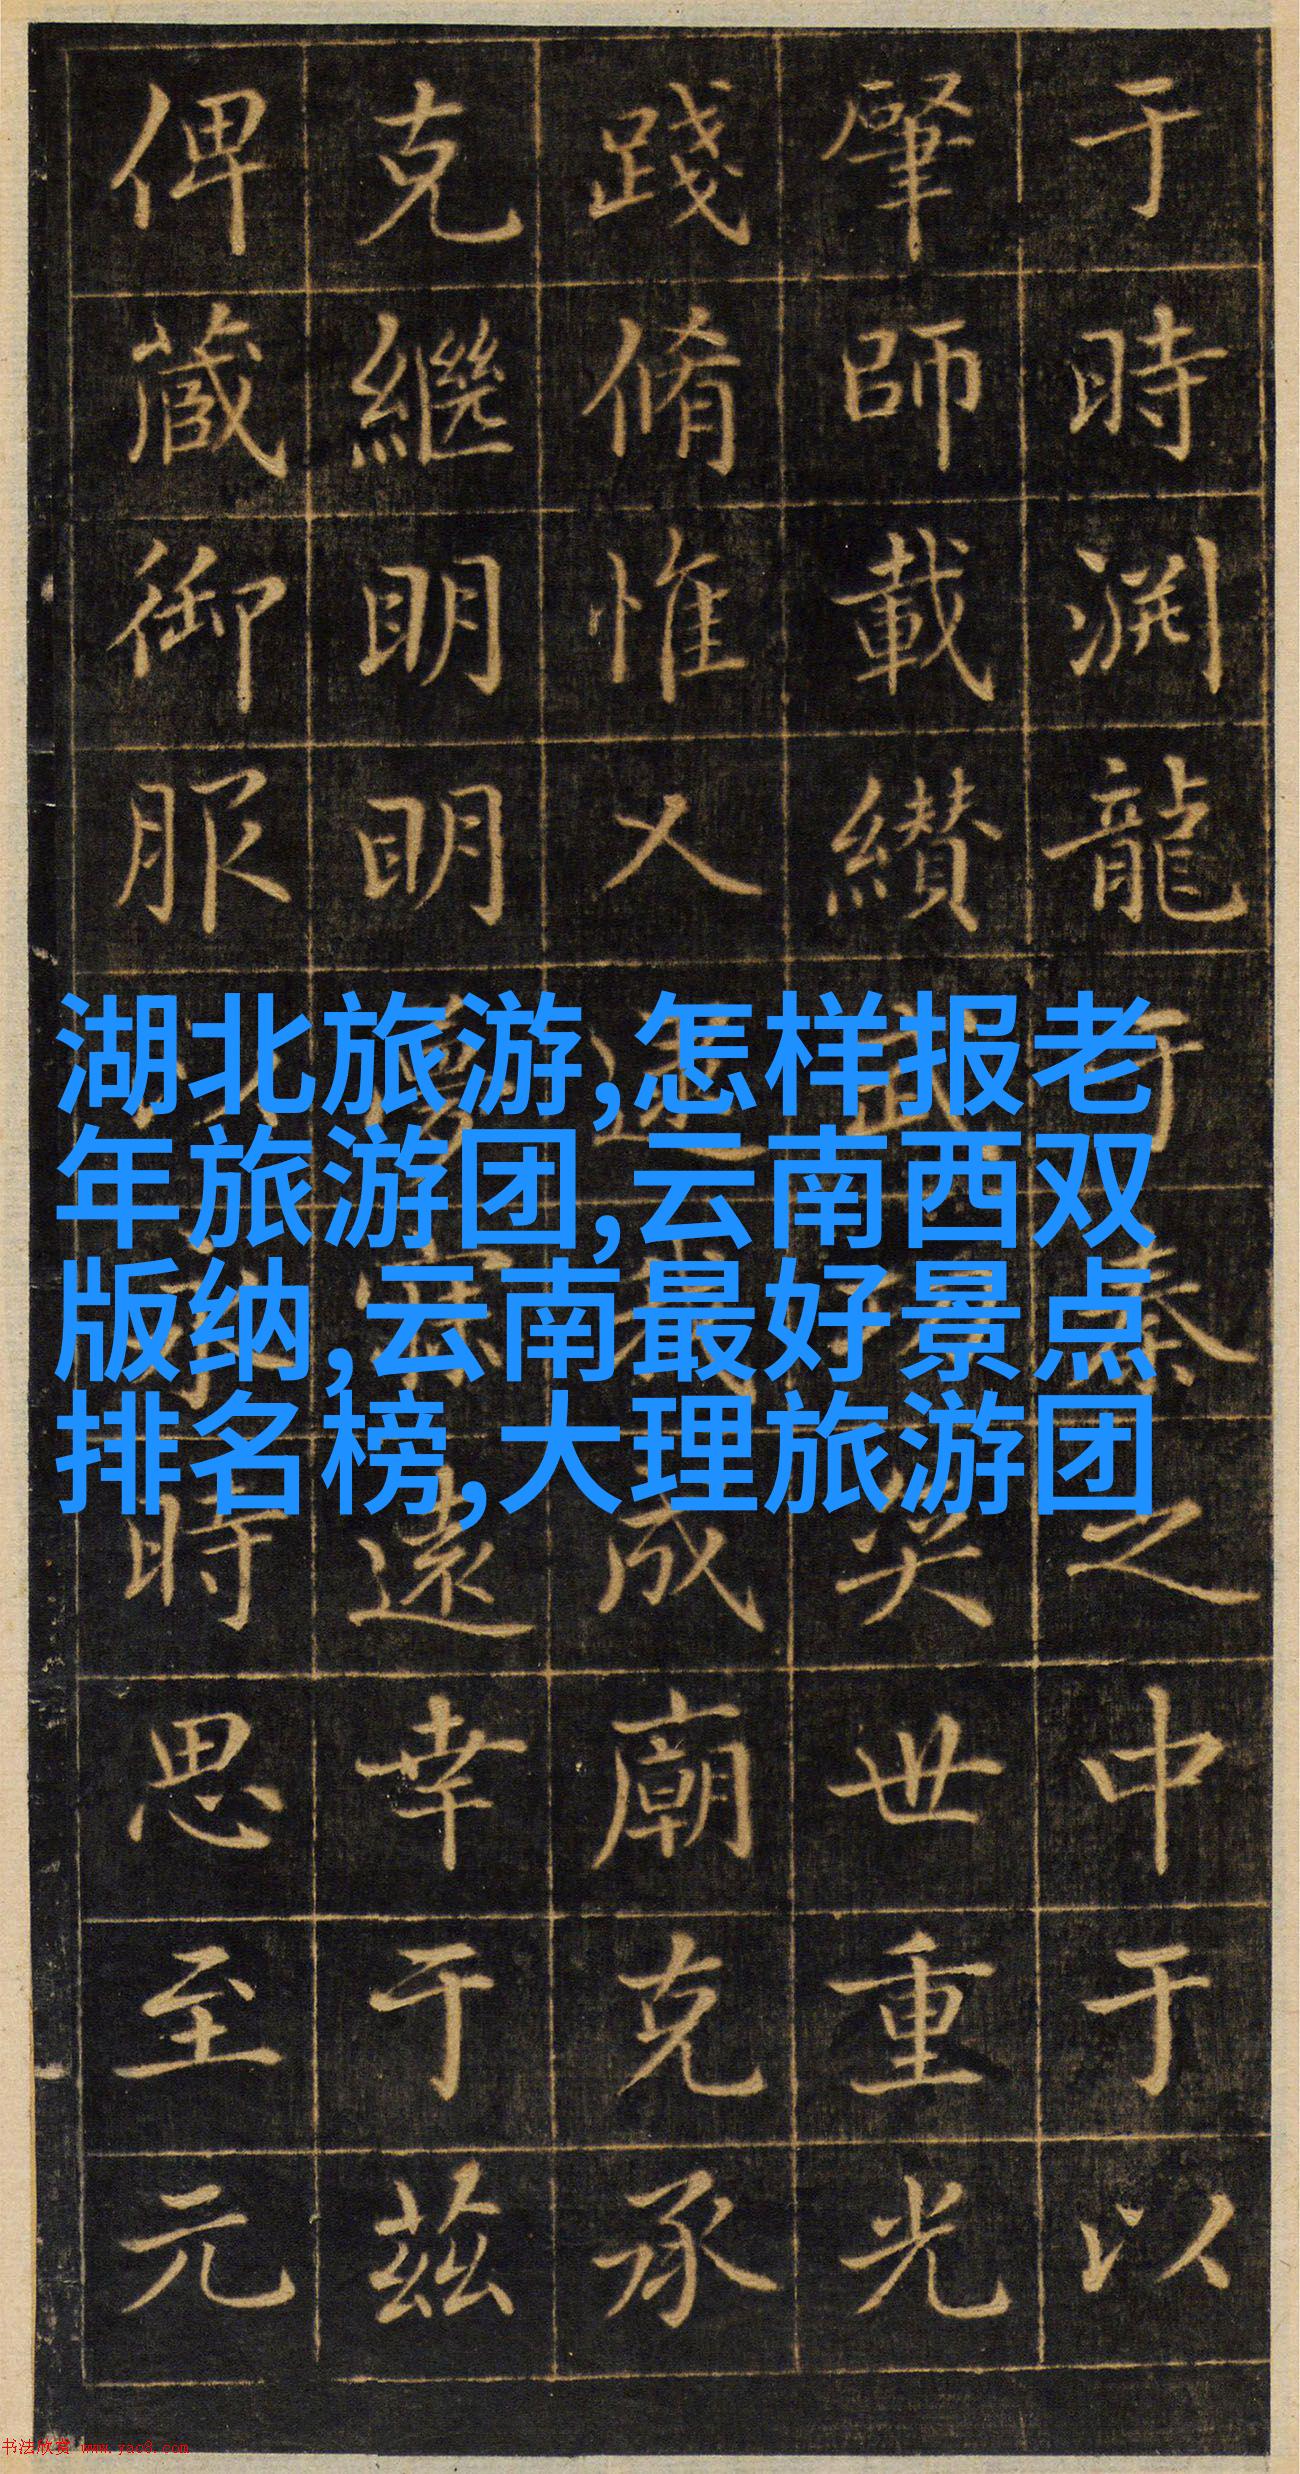 于時渊龍之中于以
肇師載纘武奕世重光
踐脩惟乂逮我成廟克承
克繼明明遠幸于茲
俾蕆御服以時思至元
湖北旅游,怎样报老
年旅游团,云南西双
版纳,云南最好景点
排名榜,大理旅游团
书法欣赏 www.yac8.com